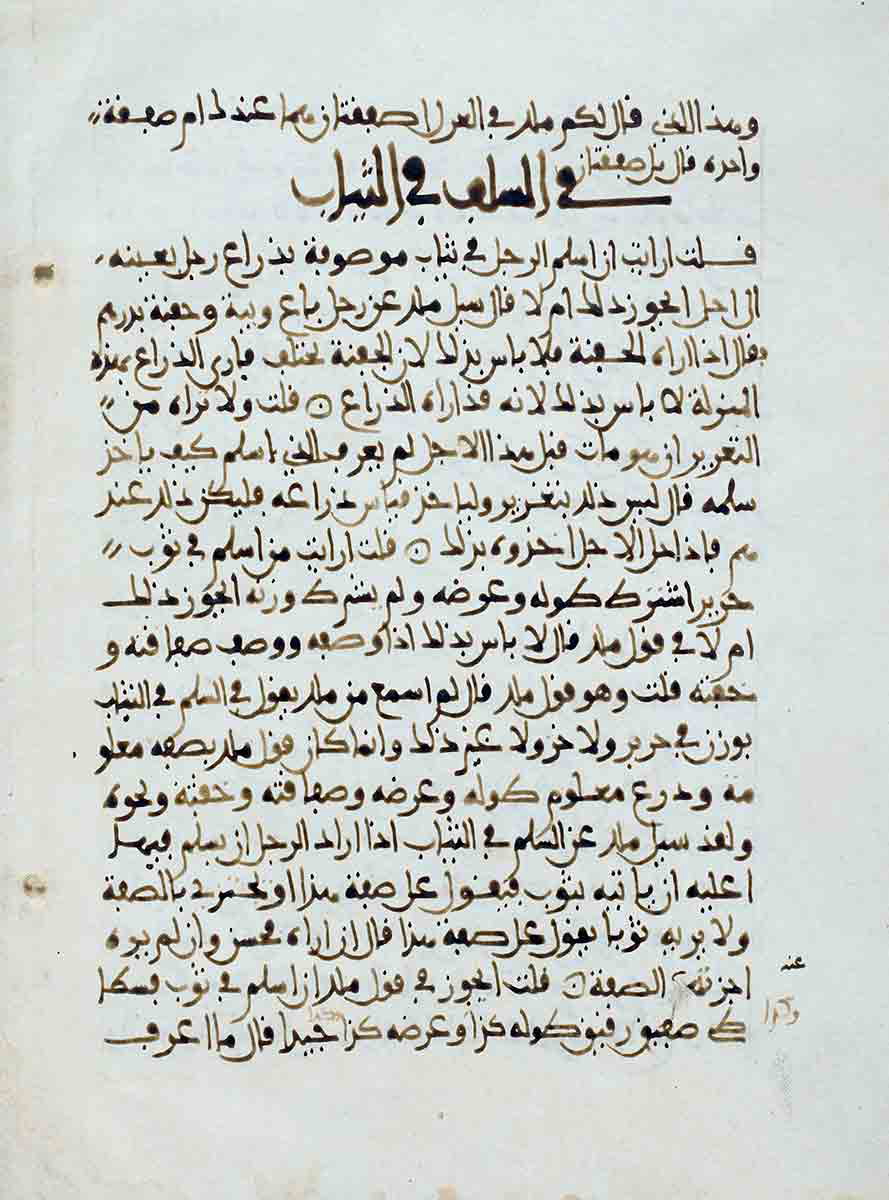 وهذا الذي قال لكم ملك في العبد اصفقتان هما عندك ام صفقة
واحدة قال بل صفقتان
في السلف في الثياب
قلت ارايت ان اسلم الرجل في ثياب موصوفة بذراع رجل بعينه
الى اجل ايجوز ذلك ام لا قال سيل ملك عن رجل باع ويبة وحفنة بدرهم
فقال اذا اراه الحفنة فلا باس بذلك لان الحفنة تختلف فارى الذراع بهذه
المنزلة لا باس بذلك لانه قد اراه الذراع قلت ولا تراه من
التغرير ان هو مات قبل هذا الاجل لم يعرف الذي اسلم كيف ياخذ
سلمه قال ليس ذلك بتغرير ولياخذ قياس ذراعه فليكن ذلك عند
هم فاذا حل الاجل اخذوه بذلك قلت ارايت من اسلم في ثوب
حرير اشترط طوله وعرضه ولم يشترط وزنه ايجوز ذلك
ام لا في قول ملك قال لا باس بذلك اذا وصفه ووصف صفاقته و
خفته قلت وهو قول ملك قال لم اسمع من ملك يقول في السلم في الثياب
بوزن في حرير ولا خز ولا غير ذلك وانما كان قول ملك بصفة معلو
مة وذرع معلوم طوله وعرضه وصفاقته وخفته ونحوه
ولقد سيل ملك عن السلم في الثياب اذا اراد الرجل ان يسلم فيها
اعليه ان ياتيه بثوب فيقول على صفة هذا او يجتزي بالصفة
ولا يريه ثوبا يقول على صفة هذا قال ان اراه فحسن وان لم يره
اجزته الصفة قلت ايجوز في قول ملك ان اسلم في ثوب فسطا
عنه
طي صفيق رقيق طوله كذا وعرضه كذا جيدا قال ما اعرف